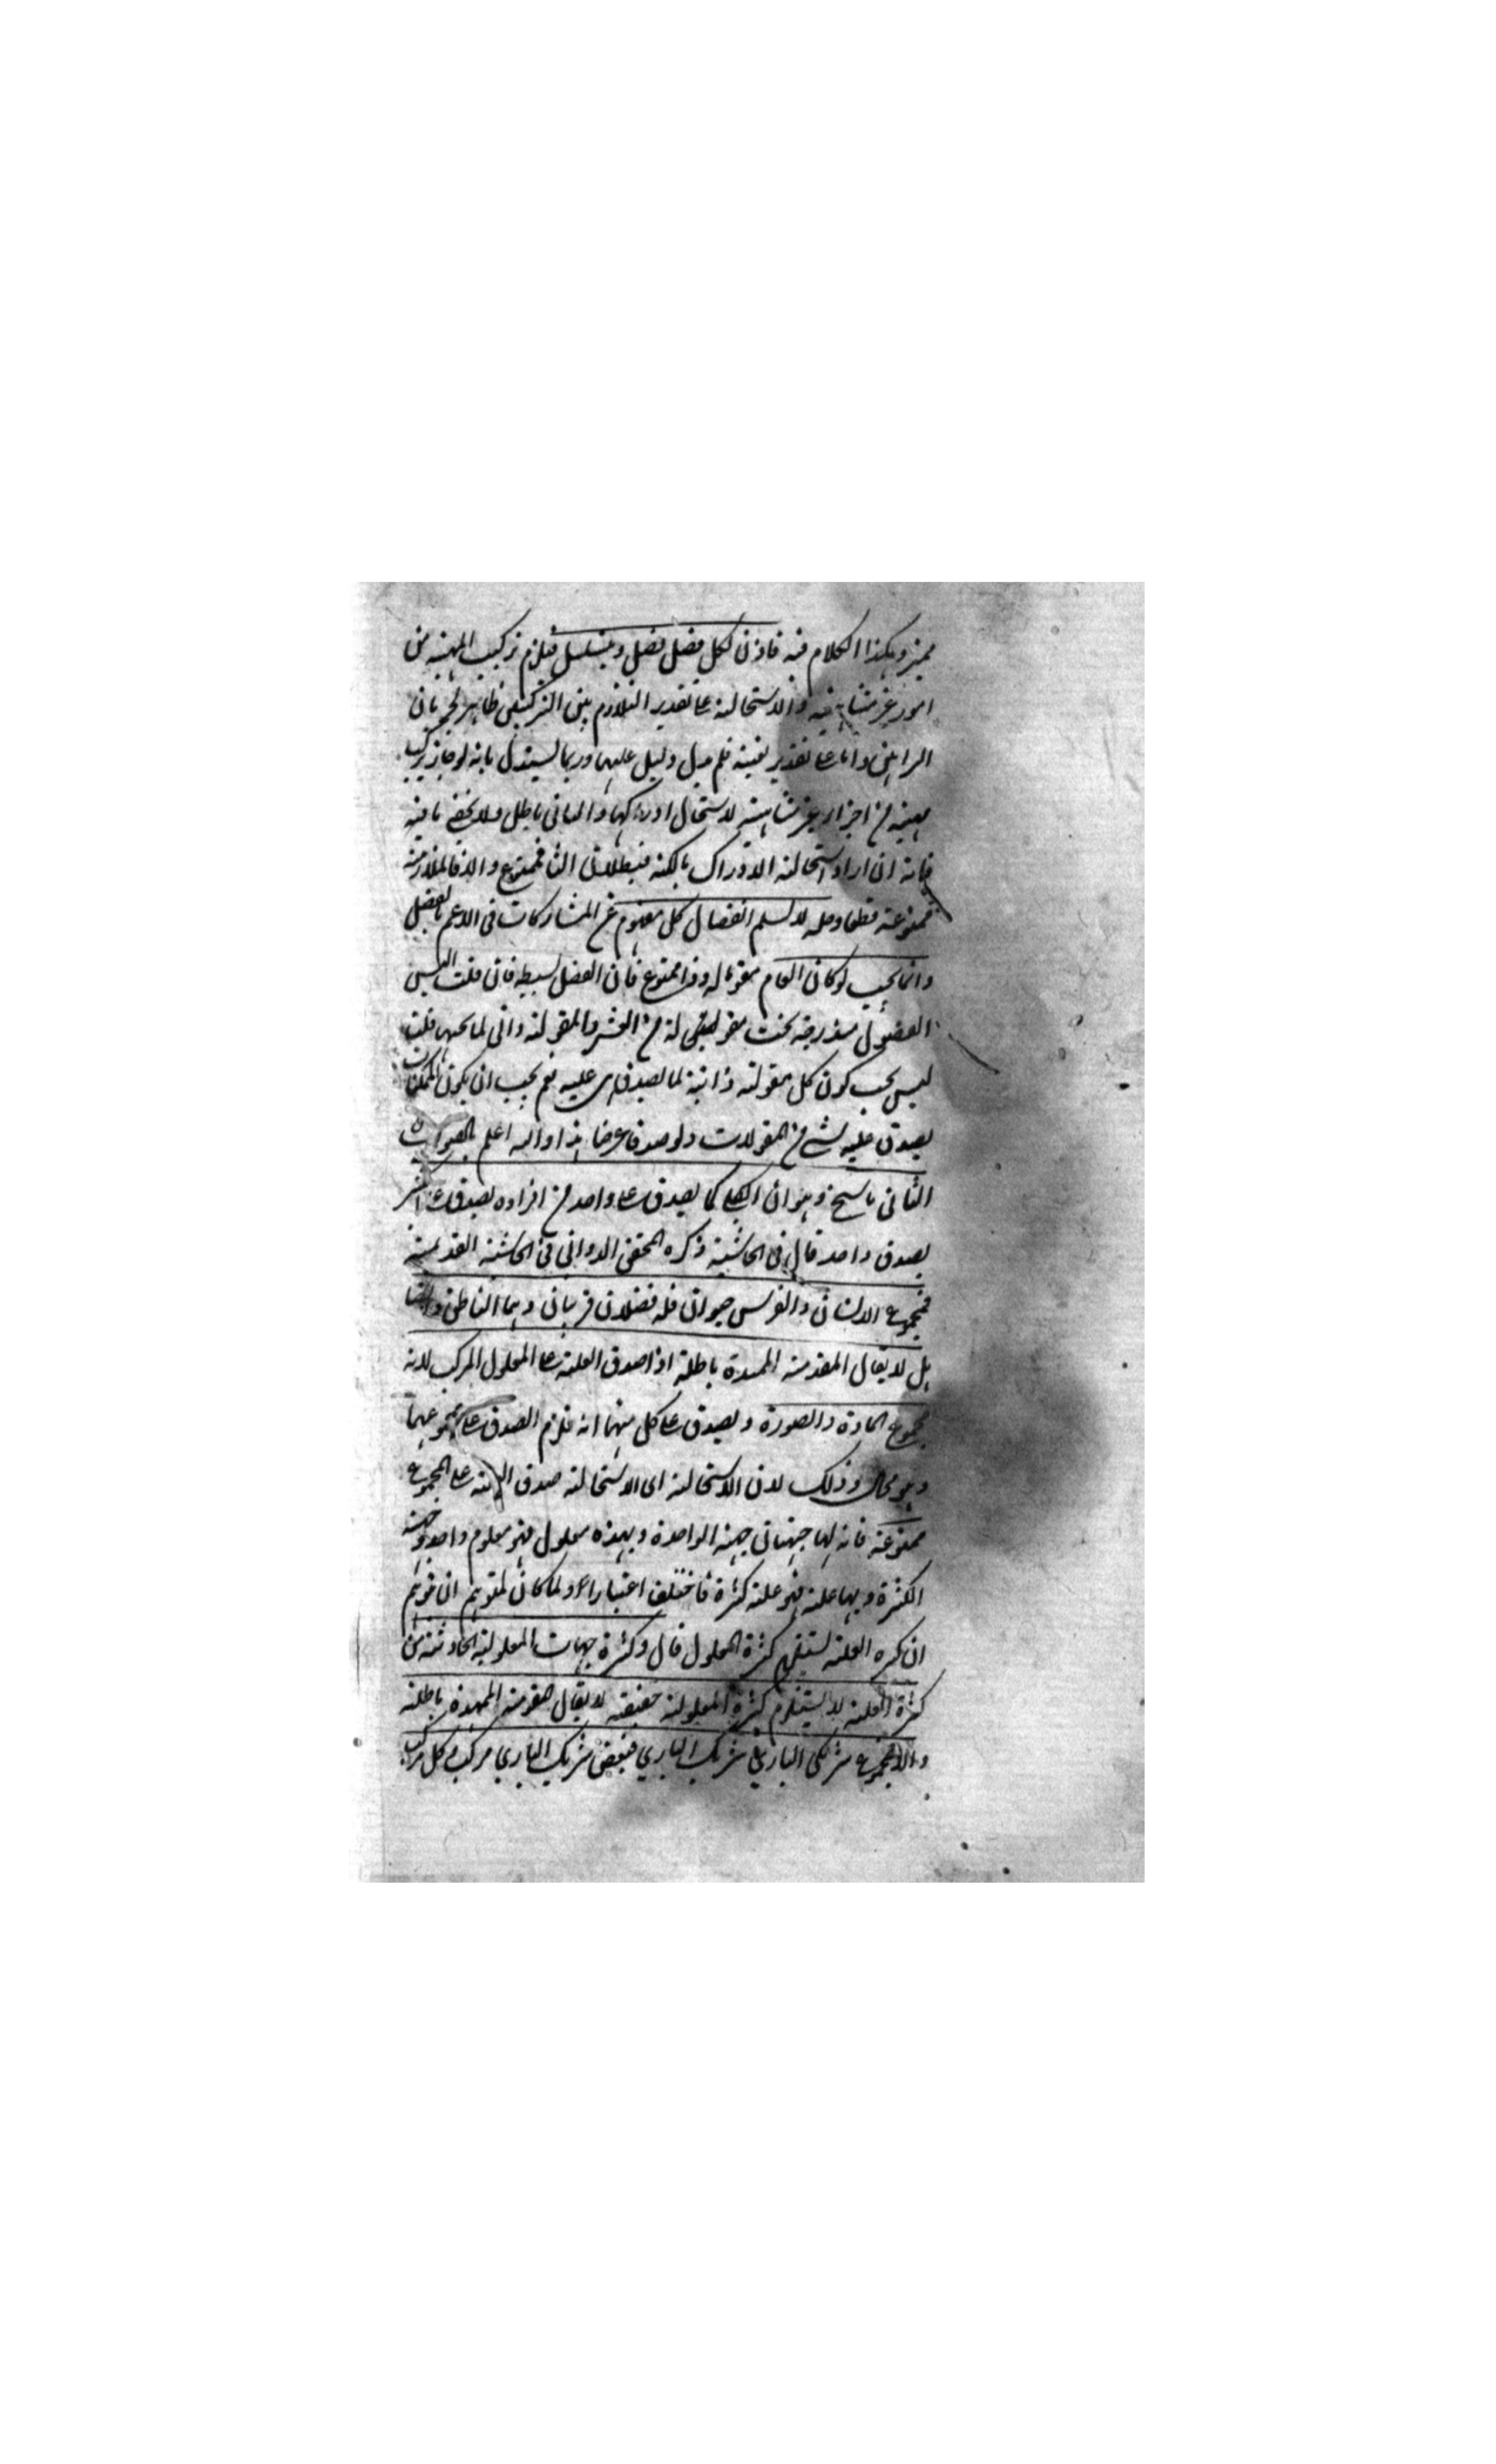 مميز وهكذا الكلام فيه فاذن لكل فصل فصل ويتسلسل فيلزم تركيب المهية من
امور غير متناهية والاستحالة على تقدير التلازم بين التركيبين ظاهر لجريان
البراهين واما على تقدير نفيه فلم يدل دليل عليها وربما يستدل بانه لو جاز تركيب
مهية من اجزاء غير متناهية لاستحال ادراكها والتالى باطل ولا يخفى ما فيه
فانه ان اراد استحالة الادراك بالكنه فبطلان التا فممنوع والا فالملازمة
ممنوعة قطعا وحله لا نسلم انفصال كل مفهوم عن المشاركات فى الاعم بالفصل
وانما يجب لو كان العام مقوما له وذا ممنوع فان الفصل بسيط فان قلت اليس
الفصول مندرجة تحت مقولة من العشر والمقولة ذاتى لما تحتها قلت
ليس يجب كون كل مقولة ذاتية لما يصدق هى عليه نعم يجب ان يكون الممكنات
يصدق عليه شئ من المقولات ولو صدقا عرضا هذا والله اعلم بالصواب
الثانى ما سنح وهو ان الكلى كما يصدق على واحد من افراده يصدق على كثير
بصدق واحد قال فى الحاشية ذكره المحقق الدوانى فى الحاشية القديمة
فمجموع الانسان والفرس حيوان فله فصلان قريبان وهما الناطق والصا
هل لا يقال المقدمة الممهدة باطلة اذا صدق العلة على المعلول المركب لانه
مجموع المادة والصورة ويصدق على كل منهما انه فلزم الصدق على مجموعهما
وهو محال وذلك لان الاستحالة اى الاستحالة صدق العلة على المجموع
ممنوعة فانه لها جهتان جهة الواحدة وبهذه معلول فهو معلوم واحد وجهة
الكثرة وبها علة فهو علة كثرة فاختلف اعتبارا ولما كان لمتوهم ان يتوهم
ان كثرة العلة يستلزم كثرة المعلول قال وكثرة جهات المعلولية الحادثة من
كثرة العلة لا يستلزم كثرة المعلولية حقيقة لا يقال المقدمة الممهدة باطلة
والا فمجموع شريكى البارى شريك البارى فبعض شريك البارى مركب وكل مركب